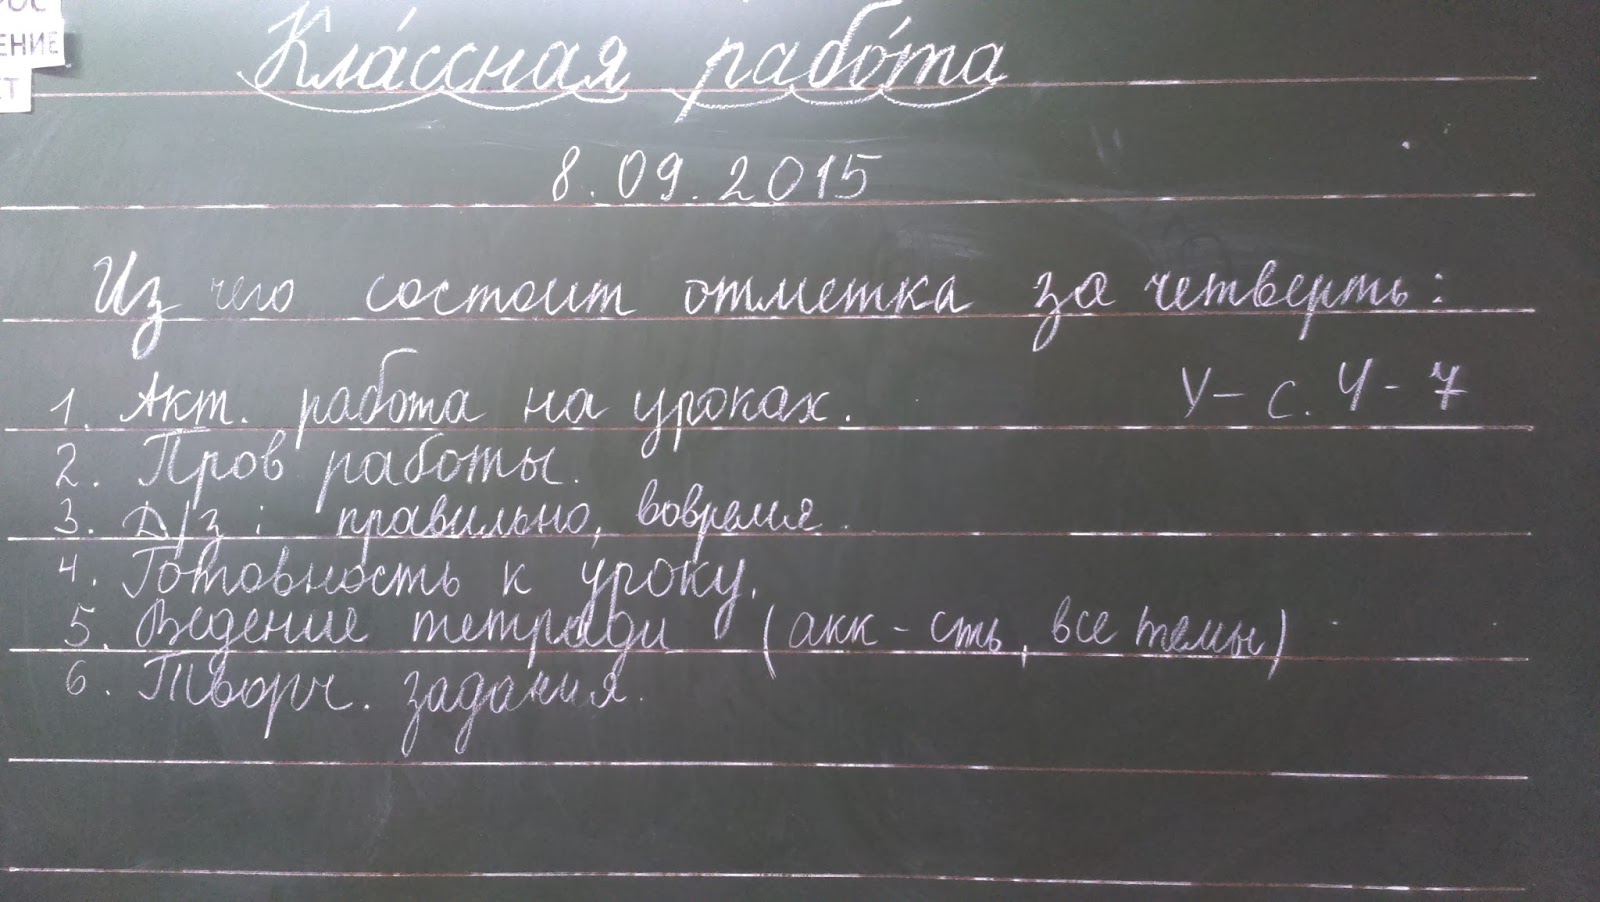 РОС
ЕНИЕ
КТ
Кла́ссная рабо́та
8.09.2015
Из чего состоит отметка за четверть:
1. Акт. работа на уроках. У – с. 4 - 7
2. Пров работы.
3. Д/з : правильно, вовремя.
4. Готовность к уроку.
5. Ведение тетради (акк - сть, все темы)
6. Творч. задания.